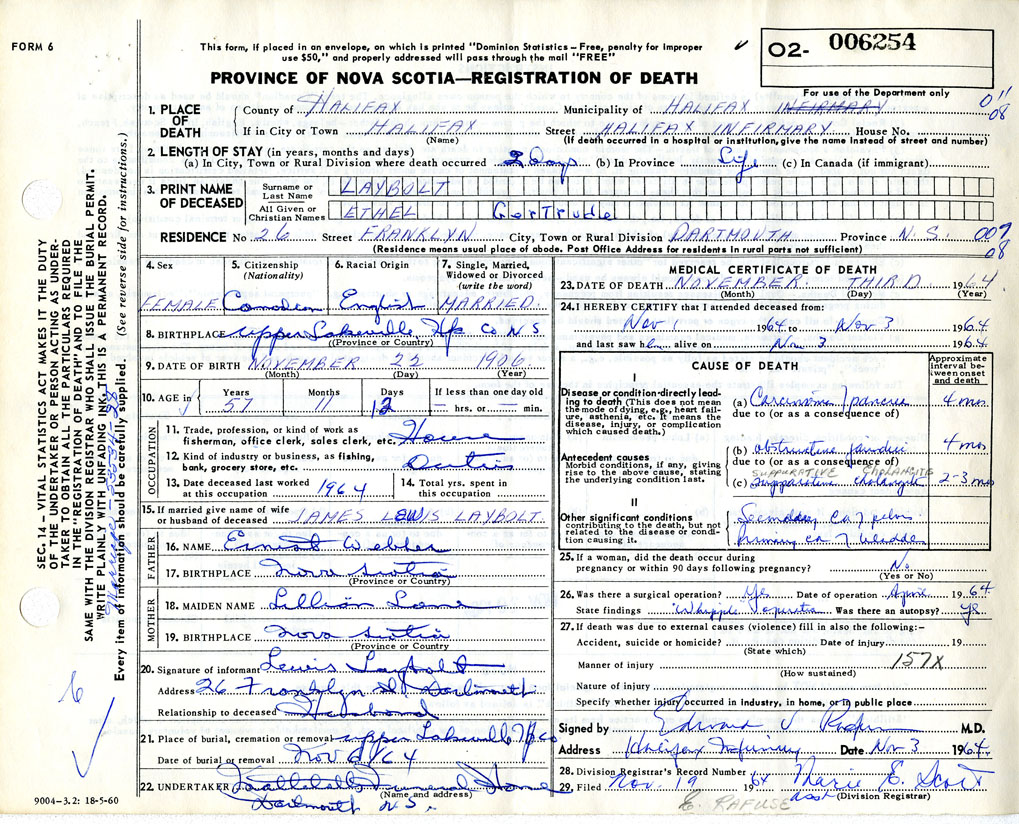 FORM 6
This form, if placed in an envelope, on which is printed "Dominion Statistics – Free, penalty for improper
use $50," and properly addressed will pass through the mail "FREE"
✓
O2- 006254
For use of the Department only
PROVINCE OF NOVA SCOTIA—REGISTRATION OF DEATH
1. PLACE OF DEATH
County of HALIFAX Municipality of HALIFAX INFIRMARY
011
08
If in City or Town HALIFAX Street HALIFAX INFIRMARY House No.
(Name) (If death occurred in a hospital or institution, give the name instead of street and number)
2. LENGTH OF STAY (in years, months and days)
(a) In City, Town or Rural Division where death occurred 3 Days (b) In Province Life (c) In Canada (if immigrant)
3. PRINT NAME OF DECEASED
Surname or Last Name LAYBOLT
All Given or Christian Names ETHEL Gertrude
RESIDENCE No 26 Street FRANKLYN City, Town or Rural Division DARTMOUTH Province N.S.
007
08
(Residence means usual place of abode. Post Office Address for residents in rural parts not sufficient)
4. Sex
FEMALE
5. Citizenship (Nationality)
6. Racial Origin
English
7. Single, Married, Widowed or Divorced (write the word)
MARRIED.
8. BIRTHPLACE Upper Lakeville, Hfx Co N S
(Province or Country)
9. DATE OF BIRTH NOVEMBER 22 1906
(Month) (Day) (Year)
10. AGE in Years 57 Months 11 Days 12 If less than one day old — hrs. or — min.
OCCUPATION
11. Trade, profession, or kind of work as
fisherman, office clerk, sales clerk, etc. House
12. Kind of industry or business, as fishing,
bank, grocery store, etc. Duties
13. Date deceased last worked
at this occupation 1964
14. Total yrs. spent in
this occupation
15. If married give name of wife
or husband of deceased JAMES LEWIS LAYBOLT.
FATHER
16. NAME Ernest Webber
17. BIRTHPLACE Nova Scotia
(Province or Country)
MOTHER
18. MAIDEN NAME Lillian
19. BIRTHPLACE Nova Scotia
(Province or Country
20. Signature of informant Lewis Laybolt
Address 26 Franklyn St, Dartmouth
Relationship to deceased Husband
21. Place of burial, cremation or removal Upper Lakeville Hfx Co
Date of burial or removal Nov 64
22. UNDERTAKER Funeral Home
(Name and address)
Dartmouth N.S.
9004-3.2: 18-5-60
MEDICAL CERTIFICATE OF DEATH
23. DATE OF DEATH NOVEMBER THIRD 1964
(Month) (Day) (Year)
24. I HEREBY CERTIFY that I attended deceased from:
Nov 1 1964 to Nov 3 1964
and last saw her alive on Nov 3 1964.
CAUSE OF DEATH
Approximate interval between onset and death
I
Disease or condition directly leading to death (This does not mean the mode of dying, e.g., heart failure, asthenia, etc. It means the disease, injury, or complication which caused death.)
(a) Carcinoma pancreas 4 mos
due to (or as a consequence of)
Antecedent causes
Morbid conditions, if any, giving rise to the above cause, stating the underlying condition last.
(b) obstructive jaundice 4 mos
due to (or as a consequence of)
SUPPURATIVE CHOLANGITIS
(c) Suppurative cholangitis 2-3 mos
II
Other significant conditions
contributing to the death, but not related to the disease or condition causing it.
Secondary ca
primary ca bladder
25. If a woman, did the death occur during
pregnancy or within 90 days following pregnancy? No
(Yes or No)
26. Was there a surgical operation? Yes Date of operation April 1964
State findings Whipple operation Was there an autopsy? yes
27. If death was due to external causes (violence) fill in also the following:–
Accident, suicide or homicide? Date of injury 19
(State which)
157X
Manner of injury
(How sustained)
Nature of injury
Specify whether injury occurred in industry, in home, or in public place
Signed by Edward J M.D.
Address Halifax Infirmary Date Nov 3 1964.
28. Division Registrar's Record Number
29. Filed Nov. 19 1964 Marie E. Scott
Asst (Division Registrar)
E. RAFUSE
SEC. 14 – VITAL STATISTICS ACT MAKES IT THE DUTY
OF THE UNDERTAKER OR PERSON ACTING AS UNDER-
TAKER TO OBTAIN ALL THE PARTICULARS REQUIRED
IN THE "REGISTRATION OF DEATH" AND TO FILE THE
SAME WITH THE DIVISION REGISTRAR WHO SHALL ISSUE THE BURIAL PERMIT.
WRITE PLAINLY WITH UNFADING INK. THIS IS A PERMANENT RECORD.
Every item of information should be carefully supplied. (See reverse side for instructions.)